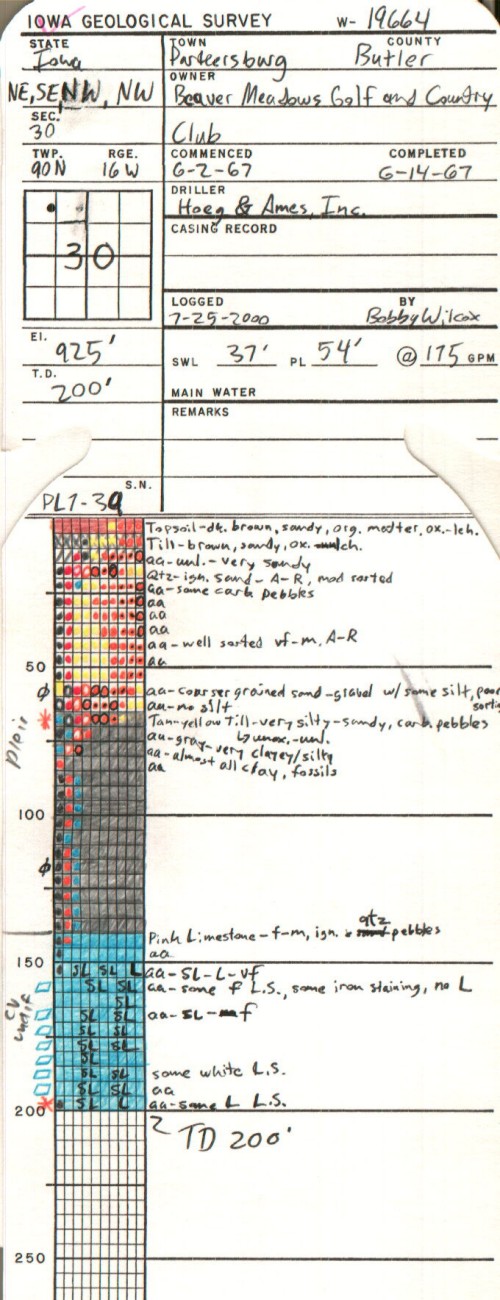 IOWA GEOLOGICAL SURVEY W- 19664
STATE TOWN COUNTY
Iowa Parteersburg Butler
OWNER
NE, SENW, NW Beaver Meadows Golf and Country
SEC.
30 Club
TWP. RGE. COMMENCED COMPLETED
90N 16W 6-2-67 6-14-67
DRILLER
Hoeg & Ames, Inc.
CASING RECORD
30
LOGGED BY
7-25-2000 Bobby Wilcox
El.
925' SWL 37' PL 54' @ 175 GPM
T.D.
200' MAIN WATER
REMARKS
S.N.
PL7-39
Topsoil-dk. brown, sandy, org. matter, ox.-lch.
Till-brown, sandy, ox. lch.
aa-unl.-very sandy
Qtz-ign. sand-A-R, mod sorted
aa-some carb pebbles
aa
aa
aa
aa-well sorted vf-m, A-R
50 aa
φ aa-courser grained sand-gravel w/ some silt, poor
sorting
aa-no silt
Tan-yellow Till-very silty-sandy, carb. pebbles
Pleis
aa-gray unox.-unl.
aa-very clayey/silty
aa-almost all clay, fossils
aa
100
φ
Pink Limestone-f-m, ign. qtz pebbles
aa
150 SL SL L aa-SL-L-vf
SL SL aa-some f L.S., some iron staining, no L
SL
SL SL aa-SL-f
SL SL
SL SL
SL
SL SL some white L.S.
SL SL aa
200 SL L aa-some L L.S.
TD 200'
250